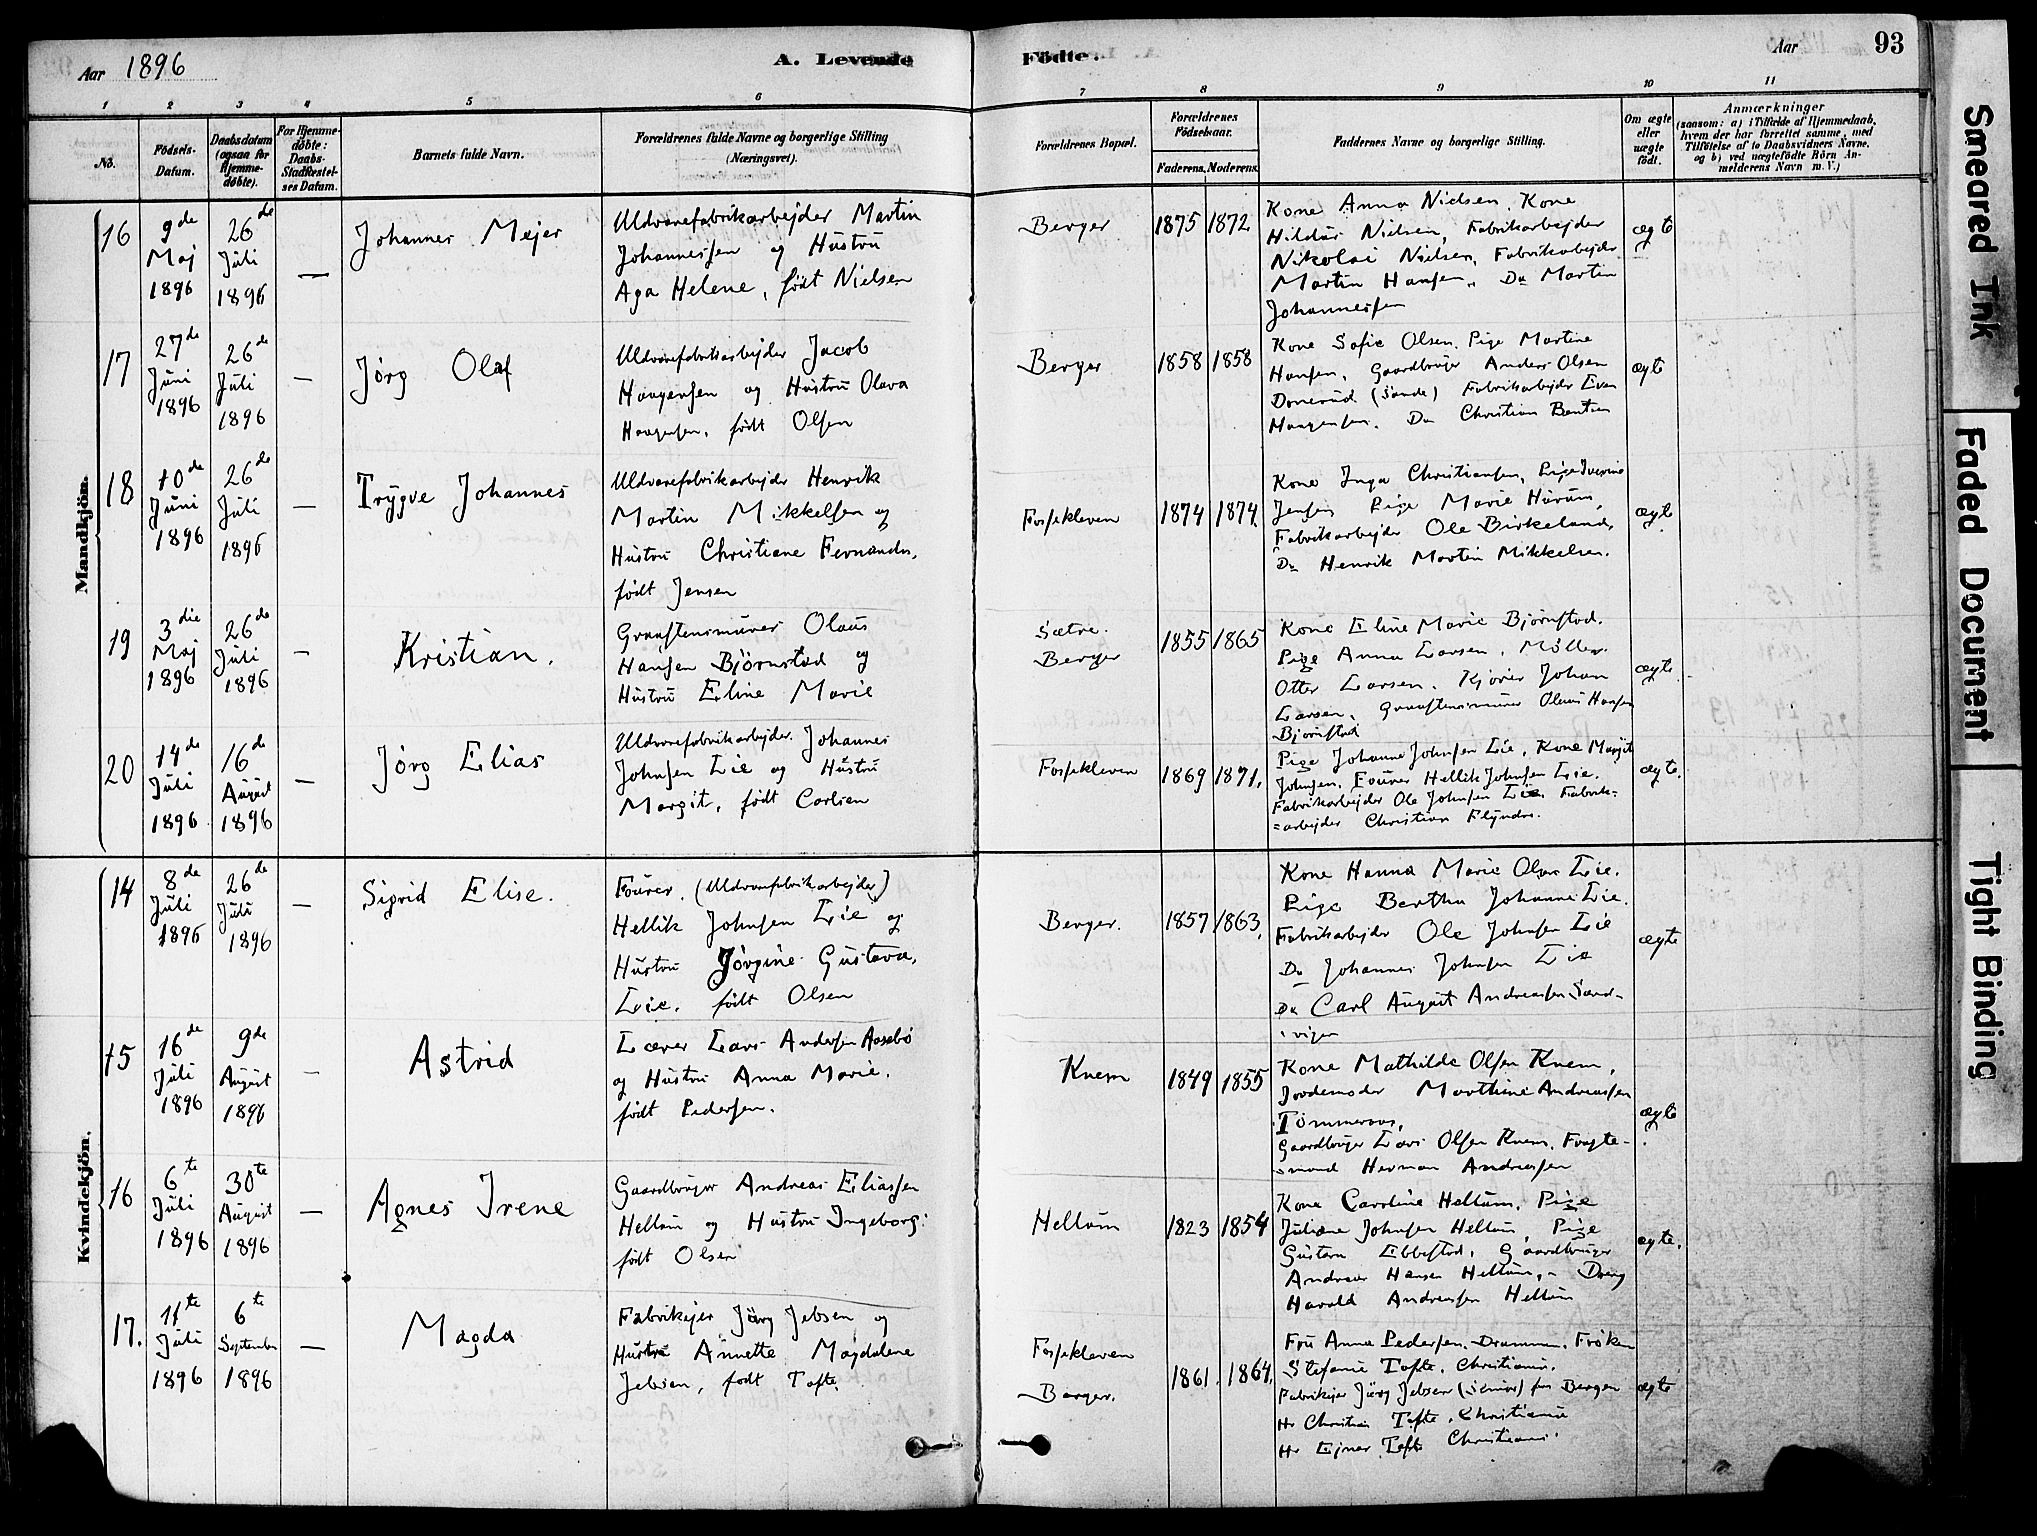 Aar 1896
A. Levende
Fødte.
Aar
93
1 2 3 4 5 6 7 8 9 10 11
No.
Fødsels-
Datum.
Daabsdatum
(ogsaa for
Hjemme-
døbte).
For Hjemme-
døbte:
Daabs-
Stadfæstel-
ses Datum.
Barnets fulde Navn.
Forældrenes fulde Navne og borgerlige Stilling
(Næringsvei).
Forældrenes Bopæl.
Forældrenes
Fødselsaar.
Faderens. Moderens.
Faddernes Navne og borgerlige Stilling.
Om ægte
eller
uægte
født.
Anmærkninger
(saasom: a) i Tilfælde af Hjemmedaab,
hvem der har forrettet samme, med
Tilføielse af to Daabsvidners Navne,
og b) ved uægtefødte Børn An-
melderens Navn m. V.)
Mandkjön.
16
9de
Maj
1896
26de
Juli
1896
—
Johannes Mejer
Uldvarefabrikarbejder Martin
Johannessen og Hustru
Aga Helene, født Nielsen
Berger
1875 1872
Kone Anna Nielsen, Kone
Hildur Nielsen, Fabrikarbejder
Nikolai Nielsen, Fabrikarbejder
Martin Hansen, Do Martin
Johannessen
ægte
17
27de
Juni
1896
26de
Juli
1896
—
Jørg Olaf
Uldvarefabrikarbejder Jacob
Haagensen og Hustru Olava
Haagensen, født Olsen
Berger
1858 1858
Kone Sofie Olsen, Pige Martine
Hansen, Gaardbruger Anders Olsen
(Sande) Fabrikarbejder
Haagensen. Do Christian Bentsen
ægte
18
10de
Juni
1896
26de
Juli
1896
—
Trygve Johannes
Uldvarefabrikarbejder Henrik
Martin Mikkelsen og
Hustru Christiane Fernanda,
født Jensen
Fossekleven
1874 1874.
Kone Inga Christiansen, Pige
Jensen, Pige Marie
Fabrikarbejder Ole Birkeland,
Do Henrik Martin Mikkelsen.
ægte
19
3die
Maj
1896
26de
Juli
1896
—
Kristian.
Graastensmurer Olaus
Hansen Bjørnstad og
Hustru Eline Marie
Sætre.
Berger
1855 1865
Kone Eline Marie Bjørnstad.
Pige Anna Larsen, Møller
Otter Larsen. Kjører Johan
Larsen, Graastensmurer Olaus Hansen
Bjørnstad
ægte.
20
14de
Juli
1896
16de
August
1896
—
Jørg Elias
Uldvarefabrikarbejder Johannes
Johnsen Lie og Hustru
Margit, født Carlsen
Fossekleven
1869 1871.
Pige Johanne Johnsen Lie, Kone Margit
Johnsen, Fourer Hellik Johnsen Lie.
Fabrikarbejder Ole Johnsen Lie, Fabrik-
=arbejder Christian Flyndre.
ægte.
Kvindekjön.
14
8de
Juli
1896
26de
Juli
1896
—
Sigrid Elise.
Fourer. (Uldvarefabrikarbejder)
Hellik Johnsen Lie og
Hustru Jørgine Gustava,
Lie. født Olsen
Berger.
1857 1863.
Kone Hanna Marie Olava Lie.
Pige Bertha Johanne Lie.
Fabrikarbejder Ole Johnsen Lie
Do Johannes Johnsen Lie
Do Carl August Andreassen Sand-
vigen
ægte
15
16de
Juli
1896
9de
August
1896
—
Astrid
Lærer Lars Andersen Aasebø
og Hustru Anna Marie.
født Pedersen.
Knem
1849 1855
Kone Mathilde Olsen Knem,
Jordemoder Marthine Andreassen
Tømmeraas,
Gaardbruger Lars Olsen Knem.
Herman Andreassen
ægte
16
6te
Juli
1896
30te
August
1896
—
Agnes Irene
Gaardbruger Andreas Eliassen
Hellum og Hustru Ingeborg.
født Olsen
Hellum
1823 1854
Kone Caroline Hellum, Pige
Juliane Johnsen Hellum, Pige
Gustava Ebbestad, Gaardbruger
Andreas Hansen Hellum, Dreng
Harald Andreassen Hellum
ægte.
17.
11te
Juli
1896
6te
September
1896
—
Magda
Fabrikejer Jürg Jebsen og
Hustru Annette Magdalene
Jebsen, født Tofte.
Fossekleven
Berger.
1861. 1864.
Fru Anna Pedersen, Drammen, Frøken
Stefanie Tofte, Christiania.
Fabrikejer Jürg Jebsen (Senior) fra Bergen
Hr Christian Tofte, Christiania
Hr Ejnar Tofte Christiania.
ægte
Smeared Ink
Faded Document
Tight Binding